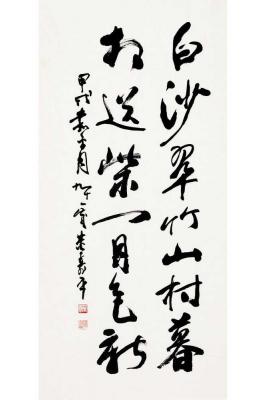 白沙翠竹山村暮
相送柴门月色新
甲戌春月九十叟董寿平